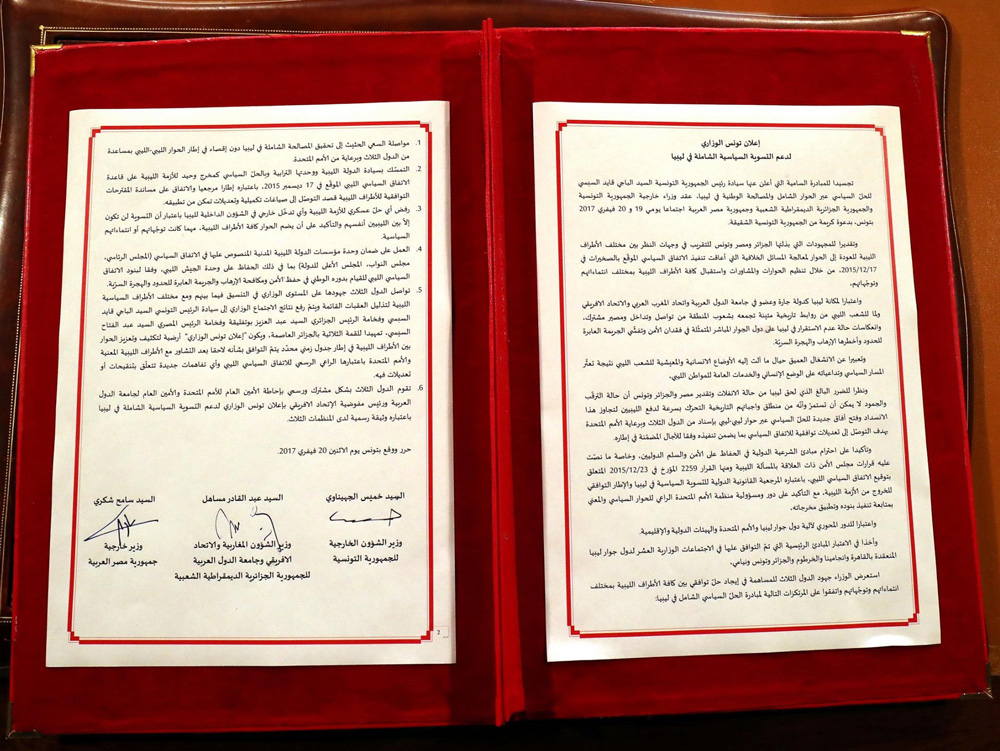 إعلان تونس الوزاري
لدعم التسوية السياسية الشاملة في ليبيا
تجسيدا للمبادرة السامية التي أعلن عنها سيادة رئيس الجمهورية التونسية السيد الباجي قايد السبسي
للحلّ السياسي عبر الحوار الشامل والمصالحة الوطنية في ليبيا، عقد وزراء خارجية الجمهورية التونسية
والجمهورية الجزائرية الديمقراطية الشعبية وجمهورية مصر العربية اجتماعا يومي 19 و 20 فيفري 2017
بتونس، بدعوة كريمة من الجمهورية التونسية الشقيقة.
وتقديرا للمجهودات التي بذلتها الجزائر ومصر وتونس للتقريب في وجهات النظر بين مختلف الأطراف
الليبية للعودة إلى الحوار لمعالجة المسائل الخلافية التي أعاقت تنفيذ الاتفاق السياسي الموقّع بالصخيرات في
2015/12/17، من خلال تنظيم الحوارات والمشاورات واستقبال كافة الأطراف الليبية بمختلف انتماءاتهم
وتوجّهاتهم،
واعتبارا لمكانة ليبيا كدولة جارة وعضو في جامعة الدول العربية واتحاد المغرب العربي والاتحاد الافريقي
ولما للشعب الليبي من روابط تاريخية متينة تجمعه بشعوب المنطقة من تواصل وتداخل ومصير مشترك،
وانعكاسات حالة عدم الاستقرار في ليبيا على دول الجوار المباشر المتمثّلة في فقدان الأمن وتفشّي الجريمة العابرة
للحدود وأخطرها الإرهاب والهجرة السريّة.
وتعبيرا عن الانشغال العميق حيال ما آلت إليه الأوضاع الانسانية والمعيشية للشعب الليبي نتيجة تعثّر
المسار السياسي وتداعياته على الوضع الإنساني والخدمات العامة للمواطن الليبي،
ونظرا للضرر البالغ الذي لحق ليبيا من حالة الانفلات وتقدير مصر والجزائر وتونس أن حالة الترقّب
والجمود لا يمكن أن تستمرّ وأنّه من منطلق واجباتهم التاريخية التحرك بسرعة لدفع الليبيين لتجاوز هذا
الانسداد وفتح آفاق جديدة للحلّ السياسي عبر حوار ليبي-ليبي بإسناد من الدول الثلاث وبرعاية الأمم المتحدة
بهدف التوصّل إلى تعديلات توافقية للاتفاق السياسي بما يضمن تنفيذه وفقا للآجال المضمّنة في إطاره.
وتأكيدا على احترام مبادئ الشرعية الدولية في الحفاظ على الأمن والسلم الدوليين، وخاصة ما نصّت
عليه قرارات مجلس الأمن ذات العلاقة بالمسألة الليبية ومنها القرار 2259 المؤرخ في 2015/12/23 المتعلق
بتوقيع الاتفاق السياسي الليبي، باعتباره المرجعية القانونية الدولية للتسوية السياسية في ليبيا والإطار التوافقي
للخروج من الأزمة الليبية، مع التأكيد على دور ومسؤولية منظمة الأمم المتحدة الراعي للحوار السياسي والمعني
بمتابعة تنفيذ بنوده وتطبيق مخرجاته.
واعتبارا للدور المحوري لآلية دول جوار ليبيا والأمم المتحدة والهيئات الدولية والإقليمية.
وأخذا في الاعتبار المبادئ الرئيسية التي تمّ التوافق عليها في الاجتماعات الوزارية العشر لدول جوار ليبيا
المنعقدة بالقاهرة وانجامينا والخرطوم والجزائر وتونس ونيامي.
استعرض الوزراء جهود الدول الثلاث للمساهمة في إيجاد حلّ توافقي بين كافة الأطراف الليبية بمختلف
انتماءاتهم وتوجّهاتهم واتفقوا على المرتكزات التالية لمبادرة الحلّ السياسي الشامل في ليبيا:
1. مواصلة السعي الحثيث إلى تحقيق المصالحة الشاملة في ليبيا دون إقصاء في إطار الحوار الليبي-الليبي بمساعدة
من الدول الثلاث وبرعاية من الأمم المتحدة.
2. التمسّك بسيادة الدولة الليبية ووحدتها الترابية وبالحلّ السياسي كمخرج وحيد للأزمة الليبية على قاعدة
الاتفاق السياسي الليبي الموقّع في 17 ديسمبر 2015، باعتباره إطارا مرجعيا والاتفاق على مساندة المقترحات
التوافقية للأطراف الليبية قصد التوصّل إلى صياغات تكميلية وتعديلات تمكن من تطبيقه.
3. رفض أي حلّ عسكري للأزمة الليبية وأي تدخّل خارجي في الشؤون الداخلية لليبيا باعتبار أن التسوية لن تكون
إلاّ بين الليبيين أنفسهم والتأكيد على أن يضم الحوار كافة الأطراف الليبية، مهما كانت توجّهاتهم أو انتماءاتهم
السياسية.
4. العمل على ضمان وحدة مؤسسات الدولة الليبية المدنية المنصوص عليها في الاتفاق السياسي (المجلس الرئاسي،
مجلس النواب، المجلس الأعلى للدولة) بما في ذلك الحفاظ على وحدة الجيش الليبي، وفقا لبنود الاتفاق
السياسي الليبي للقيام بدوره الوطني في حفظ الأمن ومكافحة الإرهاب والجريمة العابرة للحدود والهجرة السريّة.
5. تواصل الدول الثلاث جهودها على المستوى الوزاري في التنسيق فيما بينهم ومع مختلف الأطراف السياسية
الليبية لتذليل العقبات القائمة ويتمّ رفع نتائج الاجتماع الوزاري إلى سيادة الرئيس التونسي السيد الباجي قايد
السبسي وفخامة الرئيس الجزائري السيد عبد العزيز بوتفليقة وفخامة الرئيس المصري السيد عبد الفتاح
السيسي، تمهيدا للقمة الثلاثية بالجزائر العاصمة، ويكون "إعلان تونس الوزاري" أرضية لتكثيف وتعزيز الحوار
بين الأطراف الليبية في إطار جدول زمني محدّد يتمّ التوافق بشأنه لاحقا بعد التشاور مع الأطراف الليبية المعنية
والأمم المتحدة باعتبارها الراعي الرسمي للاتفاق السياسي الليبي وأي تفاهمات جديدة تتعلّق بتنقيحات أو
تعديلات فيه.
6. تقوم الدول الثلاث بشكل مشترك ورسمي بإحاطة الأمين العام للأمم المتحدة والأمين العام لجامعة الدول
العربية ورئيس مفوضية الإتحاد الافريقي بإعلان تونس الوزاري لدعم التسوية السياسية الشاملة في ليبيا
باعتباره وثيقة رسمية لدى المنظمات الثلاث.
حرر ووقع بتونس يوم الاثنين 20 فيفري 2017.
السيد خميس الجهيناوي
وزير الشؤون الخارجية
للجمهورية التونسية
السيد عبد القادر مساهل
وزير الشؤون المغاربية والاتحاد
الافريقي وجامعة الدول العربية
للجمهورية الجزائرية الديمقراطية الشعبية
السيد سامح شكري
وزير خارجية
جمهورية مصر العربية
2